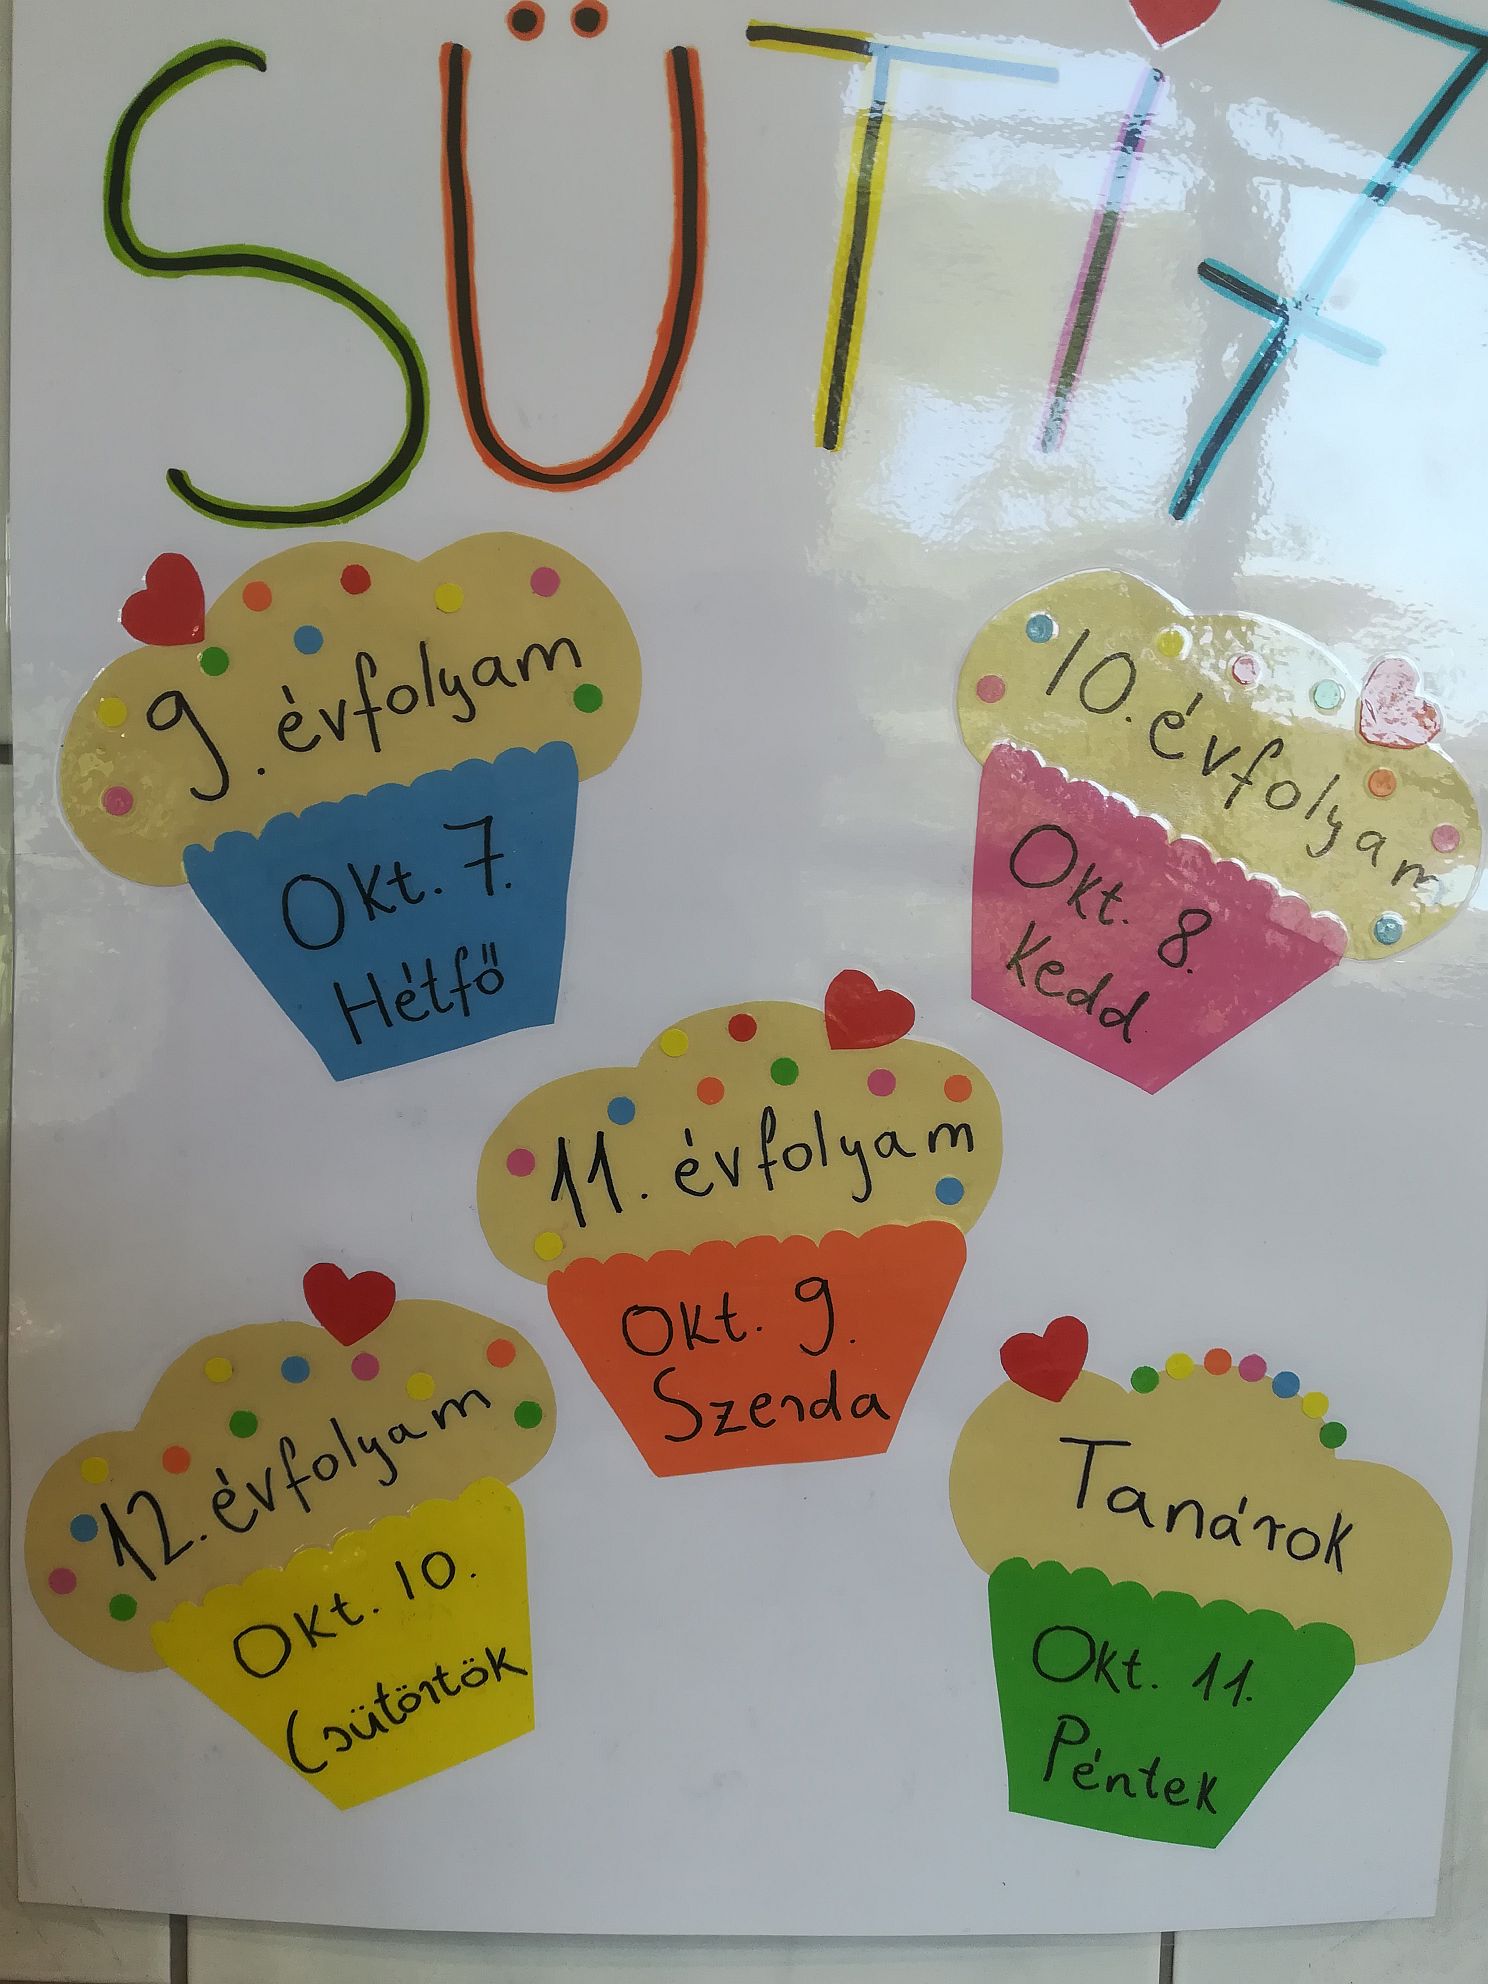 SÜTI7
9. évfolyam
Okt. 7.
Hétfő
10. évfolyam
Okt. 8.
Kedd
11. évfolyam
Okt. 9.
Szerda
12. évfolyam
Okt. 10.
Csütörtök
Tanárok
Okt. 11.
Péntek